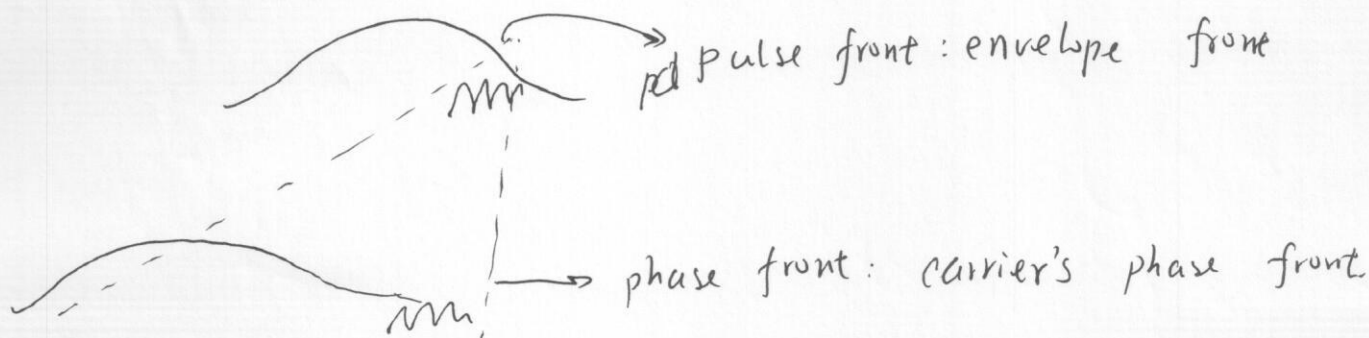 Pulse front : envelope front
phase front : carrier's phase front.